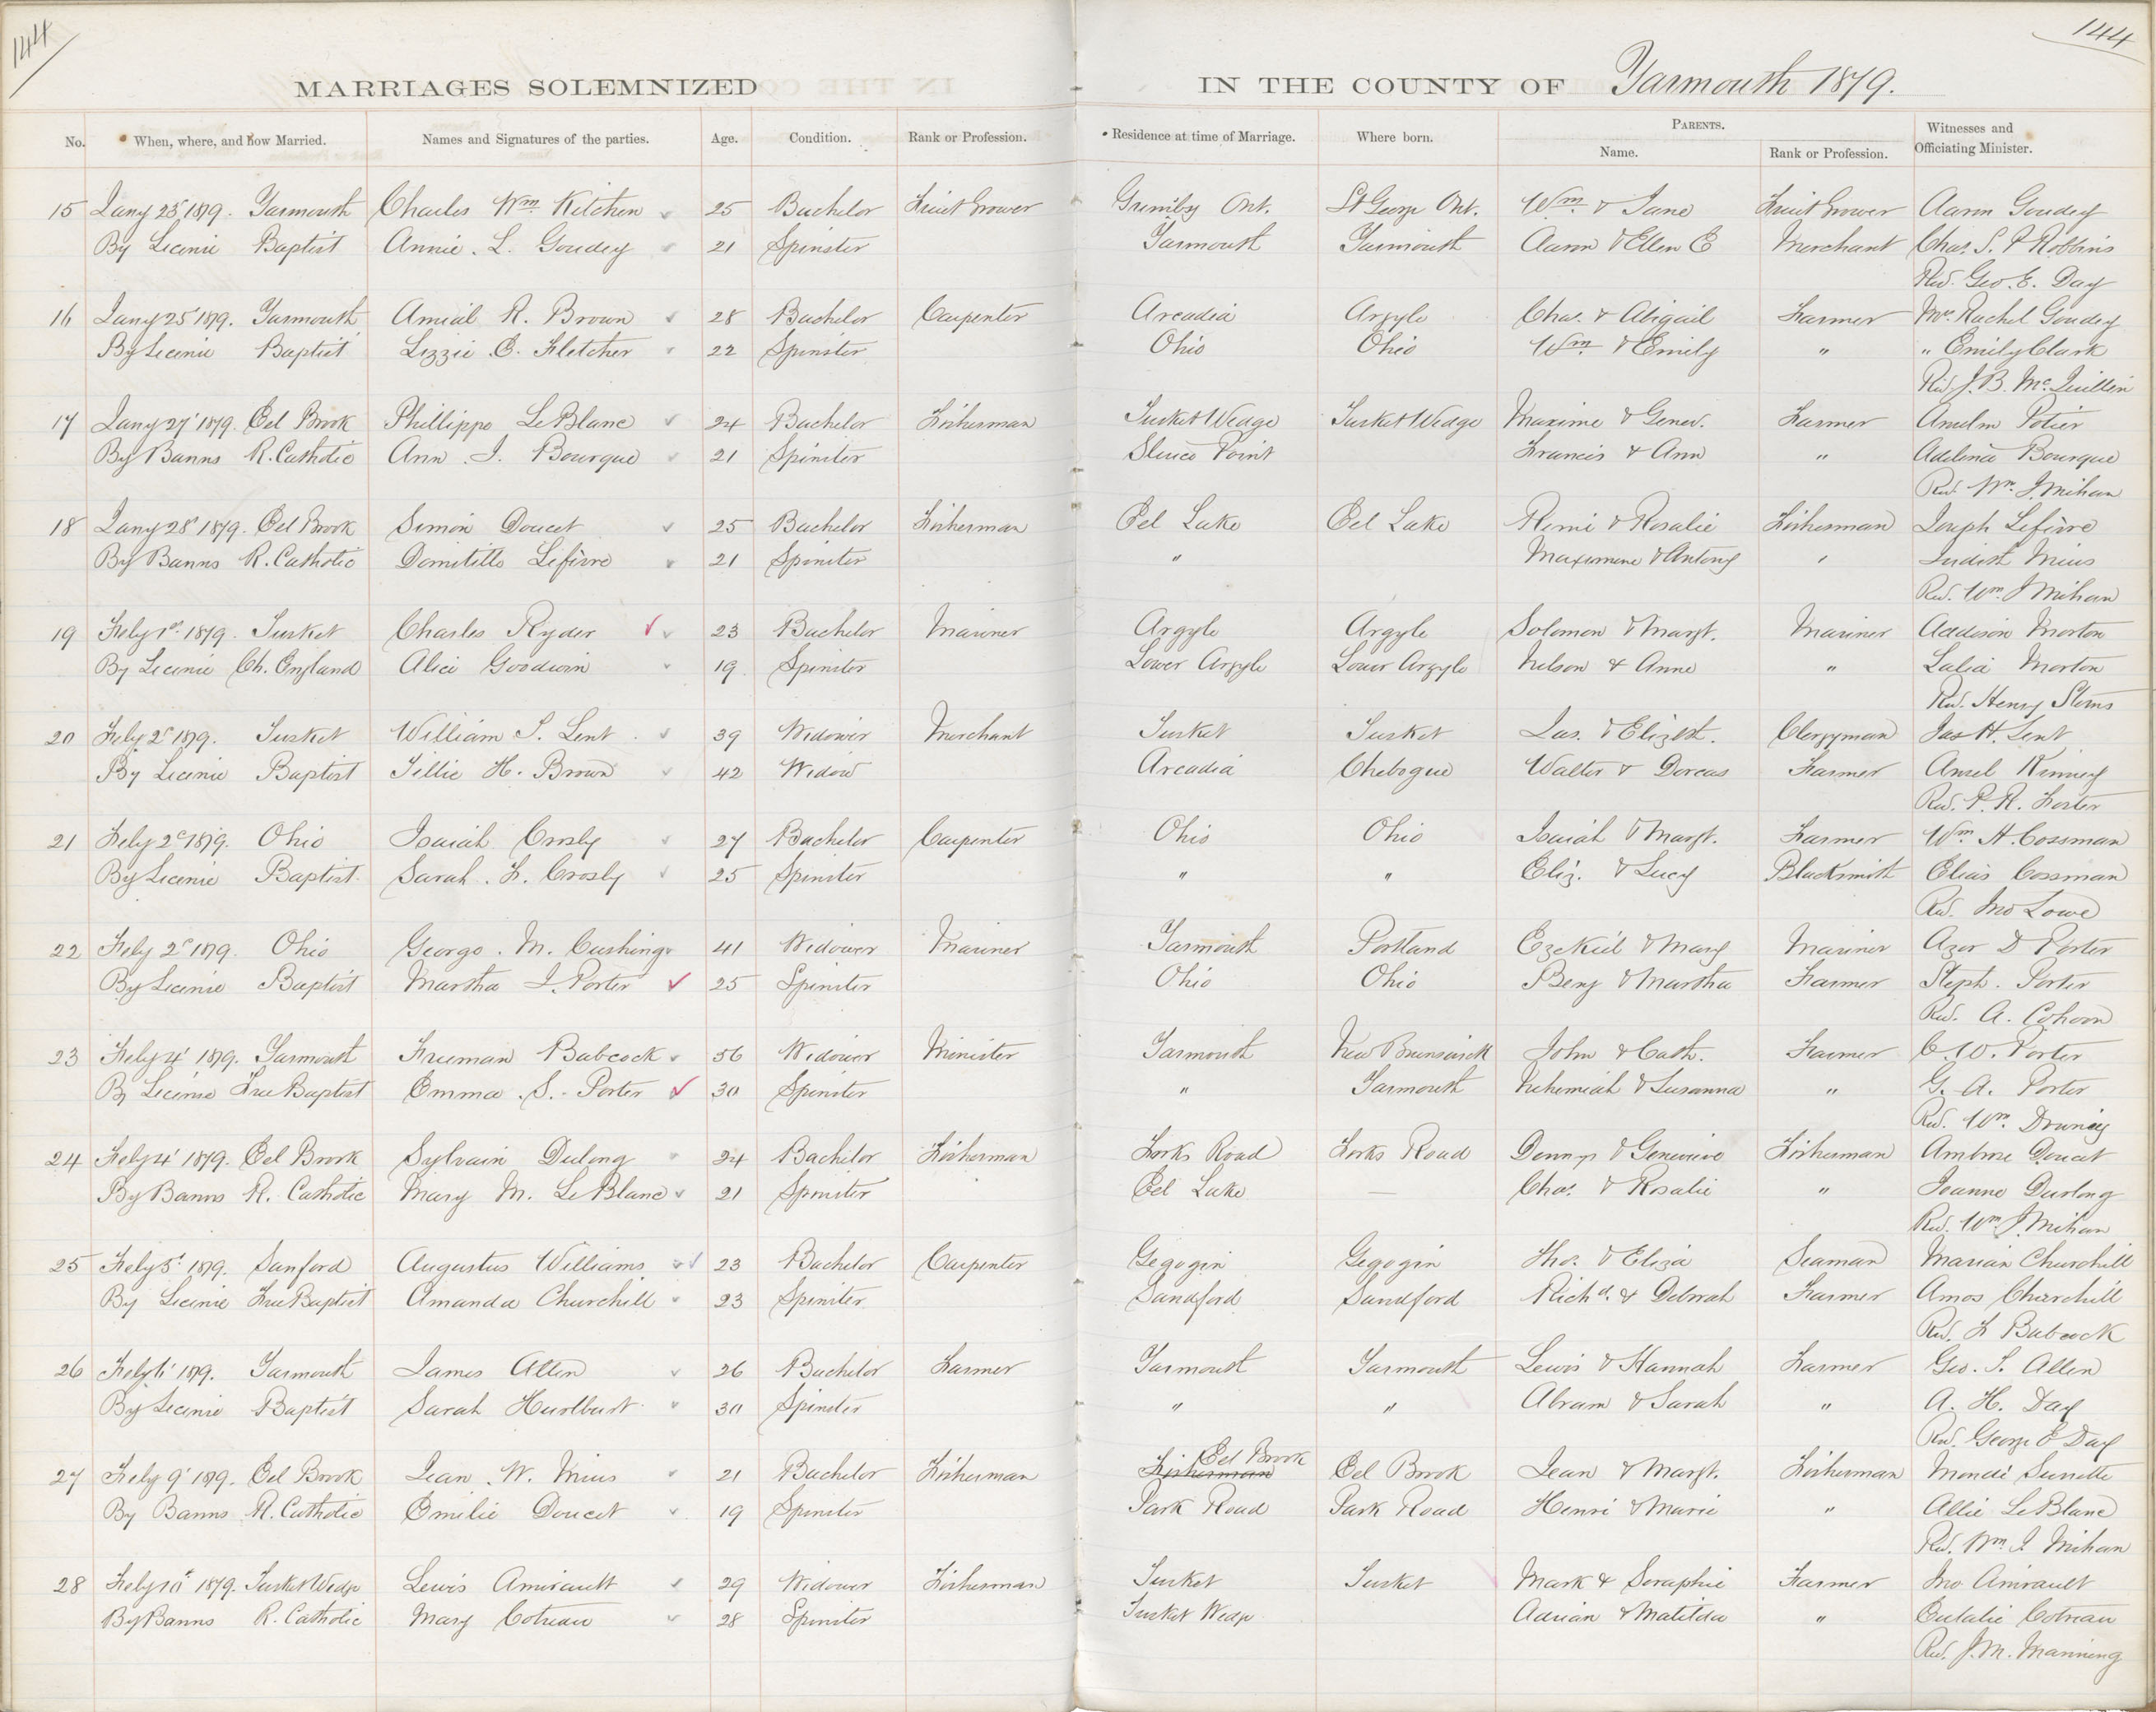 144
144
MARRIAGES SOLEMNIZED IN THE COUNTY OF Yarmouth 1879.
No. When, where, and how Married. Names and Signatures of the parties. Age. Condition. Rank or Profession. Residence at time of Marriage. Where born. PARENTS. Name. Rank or Profession. Witnesses and Officiating Minister.
15 Jany 25 1879. Yarmouth Charles Wm Kitchen 25 Bachelor Fruit Grower Grimsby Ont. St George Ont. Wm & Jane Fruit Grower Aaron Goudey
By Licence Baptist Annie. L. Goudey 21 Spinster Yarmouth Yarmouth Aaron & Ellen E Merchant Chas. S. P Robbins
Rev. Geo. E. Day
16 Jany 25 1879. Yarmouth Amial R. Brown 28 Bachelor Carpenter Arcadia Argyle Chas. & Abigail Farmer Mrs Rachel Goudey
By Licence Baptist Lizzie E. Fletcher 22 Spinster Ohio Ohio Wm & Emily " " Emily Clark
Rev. J. B. McQuillin
17 Jany 27 1879. Eel Brook Phillippe LeBlanc 24 Bachelor Fisherman Tusket Wedge Tusket Wedge Maxime & Genev. Farmer Anselm Potier
By Banns R. Catholic Ann. I. Bourque 21 Spinster Sluice Point Francis & Ann " Adeline Bourque
Rev. Wm. J. Mihan
18 Jany 28 1879. Eel Brook Simon Doucet 25 Bachelor Fisherman Eel Lake Eel Lake Remi & Rosalie Fisherman Joseph Lefivre
By Banns R. Catholic Domitille Lefivre 21 Spinster " & Antony " Judith Mius
Rev. Wm. J Mihan
19 Feby 1st 1879. Tusket Charles Ryder 23 Bachelor Mariner Argyle Argyle Solomon & Margt. Mariner Addison Morton
By Licence Ch. England Alice Goodwin 19 Spinster Lower Argyle Lower Argyle Nelson & Anne " Lalia Morton
Rev. Henry Sterns
20 Feby 2d 1879. Tusket William S. Lent. 39 Widower Merchant Tusket Tusket Jas. & Elizbt. Clergyman Jas H. Lent
By Licence Baptist Tillie H. Brown 42 Widow Arcadia Chebogue Walter & Dorcas Farmer Ansel Kinney
Rev. P. R. Foster
21 Feby 2d 1879. Ohio Isaiah Crosby 27 Bachelor Carpenter Ohio Ohio Isaiah & Margt. Farmer Wm H. Cossman
By Licence Baptist. Sarah. F. Crosby 25 Spinster " " Eliz. & Lucy Blacksmith Elias Cossman
Rev. Jno Lowe
22 Feby 2d 1879. Ohio George. M. Cushing 41 Widower Mariner Yarmouth Portland Ezekiel & Mary Mariner Azor D Porter
By Licence Baptist Martha J. Porter 25 Spinster Ohio Ohio Benj & Martha Farmer Steph. Porter
Rev. A. Cohoon
23 Feby 4 1879. Yarmouth Freeman Babcock 56 Widower Minister Yarmouth New Brunswick John & Cath. Farmer C. W. Porter
By License Free Baptist Emma. S. Porter 30 Spinster " Yarmouth Nehemiah & Susanna " G. A. Porter
Rev. Wm. Downey
24 Feby 4 1879. Eel Brook Sylvain Dulong 24 Bachelor Fisherman Forks Road Forks Road Dennys & Genevieve Fisherman Ambrose Doucet
By Banns R. Catholic Mary M. LeBlanc 21 Spinster Eel Lake — Chas. & Rosalie " Joanne Durlong
Rev. Wm. J. Mihan
25 Feby 5 1879. Sanford Augustus Williams 23 Bachelor Carpenter Gegogin Gegogin Thos. & Eliza Seaman Marian Churchill
By Licence Free Baptist Amanda Churchill 23 Spinster Sandford Sandford Richd. & Deborah Farmer Amos Churchill
Rev. F Babcock
26 Feby 6 1879. Yarmouth James Allen 26 Bachelor Farmer Yarmouth Yarmouth Lewis & Hannah Farmer Geo. S. Allen
By Licence Baptist Sarah Hurlburt 30 Spinster " " Abram & Sarah " A. H. Day
Rev. George E Day
27 Feby 9 1879. Eel Brook Jean. W. Mius 21 Bachelor Fisherman Fisherman Eel Brook Eel Brook Jean & Margt. Fisherman Mondé Surrette
By Banns R. Catholic Emilie Doucet 19 Spinster Park Road Park Road Henri & Marie " Allie LeBlanc
Rev. Wm. J. Mihan
28 Feby 10 1879. Tusket Wedge Lewis Amirault 29 Widower Fisherman Tusket Tusket Mark & Seraphie Farmer Jno Amirault
By Banns R. Catholic Mary Cotreau 28 Spinster Tusket Wedge Adrian & Matilda " Eulalie Cotreau
Rev. J. M. Manning